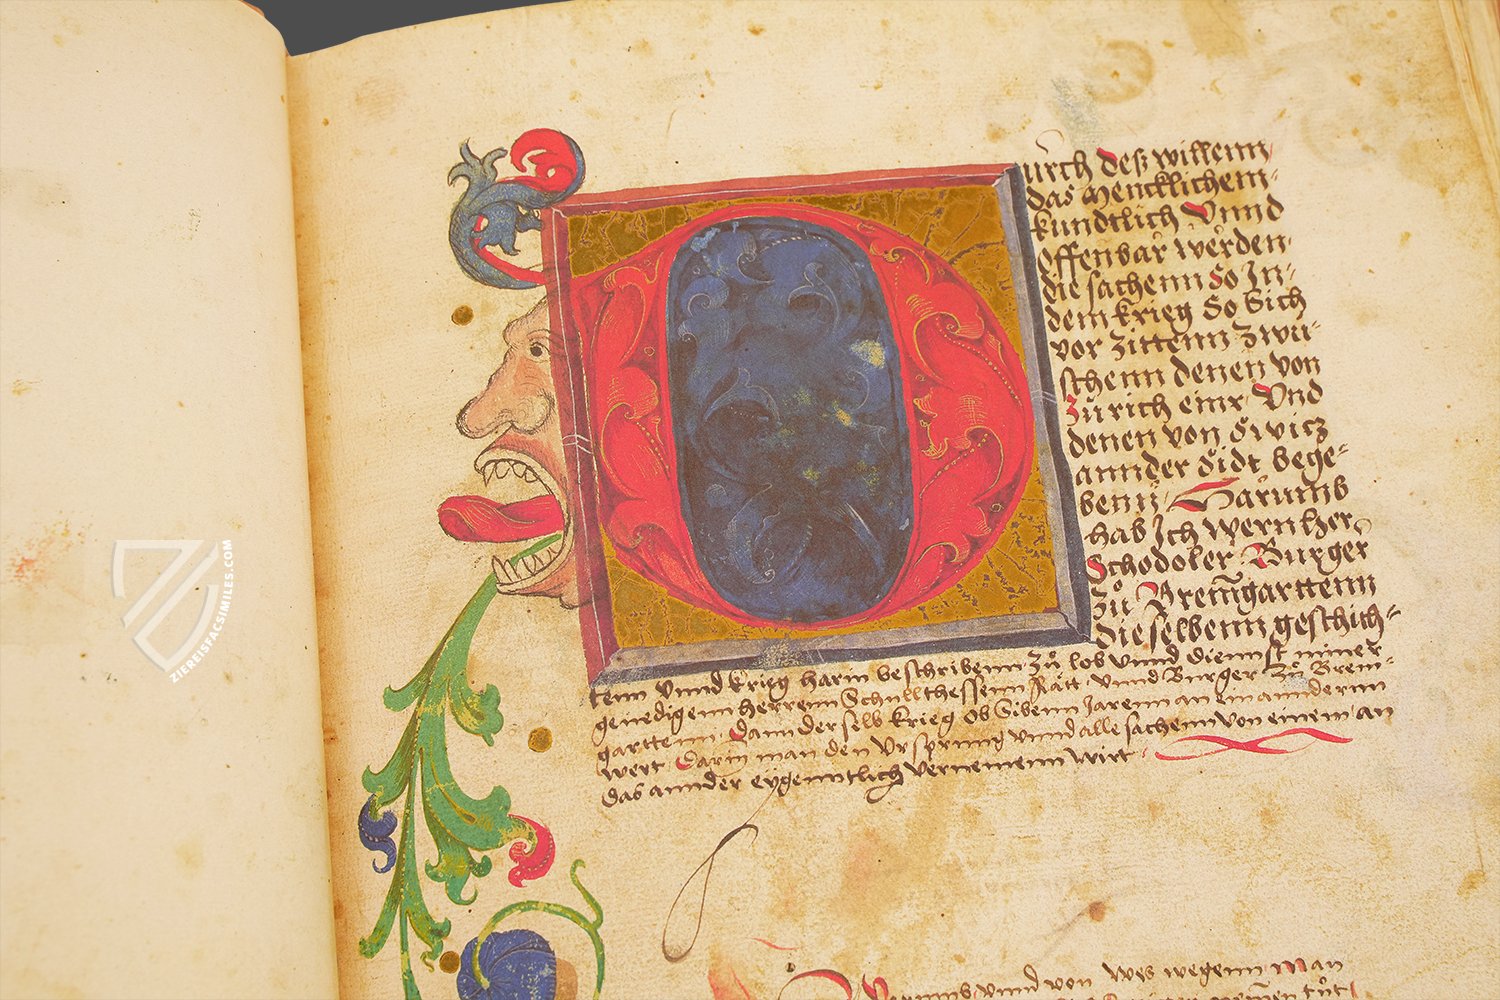 Durch deß willenn
das Mencklichem
kundtlich Vnnd
offenbar werden
die sachenn So In
dem krieg So Sich
vor Zittenn zwü
schenn denen von
Zürich einr Vnd
denen von Switz
annder Sidt bege
benn, Darumb
hab Ich Wernher
Schodoler Burger
Zů Bremgarttenn
die selbenn geschich
tenn vnnd krieg harin beschribenn Zů lob vnnd dienst miner
genedigenn herrenn Schullthessenn Rätt vnnd Burger Zů Brem
garttenn. Dann der selb krieg ob Sibenn Jarenn an ein anndernn
wert Darin man den Vrsprung vnnd alle sachenn von einem an
das annder eygenntlich vernemenn wirt
vnnd von wes wegenn man
ZIEREISFACSIMILES.COM